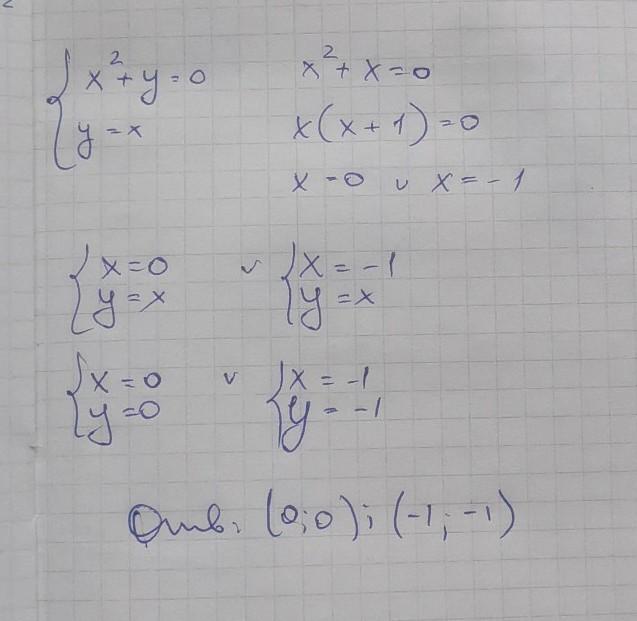 x² + y = 0
y = x
x² + x = 0
x(x + 1) = 0
x = 0 ∨ x = -1
x = 0 ∨ x = -1
y = x y = x
x = 0 ∨ x = -1
y = 0 y = -1
Отв: (0; 0); (-1; -1)